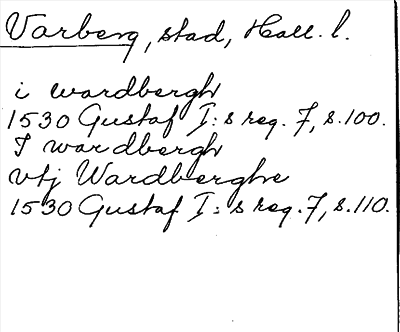 Varberg, stad, Hall. l.
i wardbergh
1530 Gustaf I:s reg. 7, s. 100.
I wardbergh
vtj Wardberghe
1530 Gustaf I:s reg. 7, s. 110.